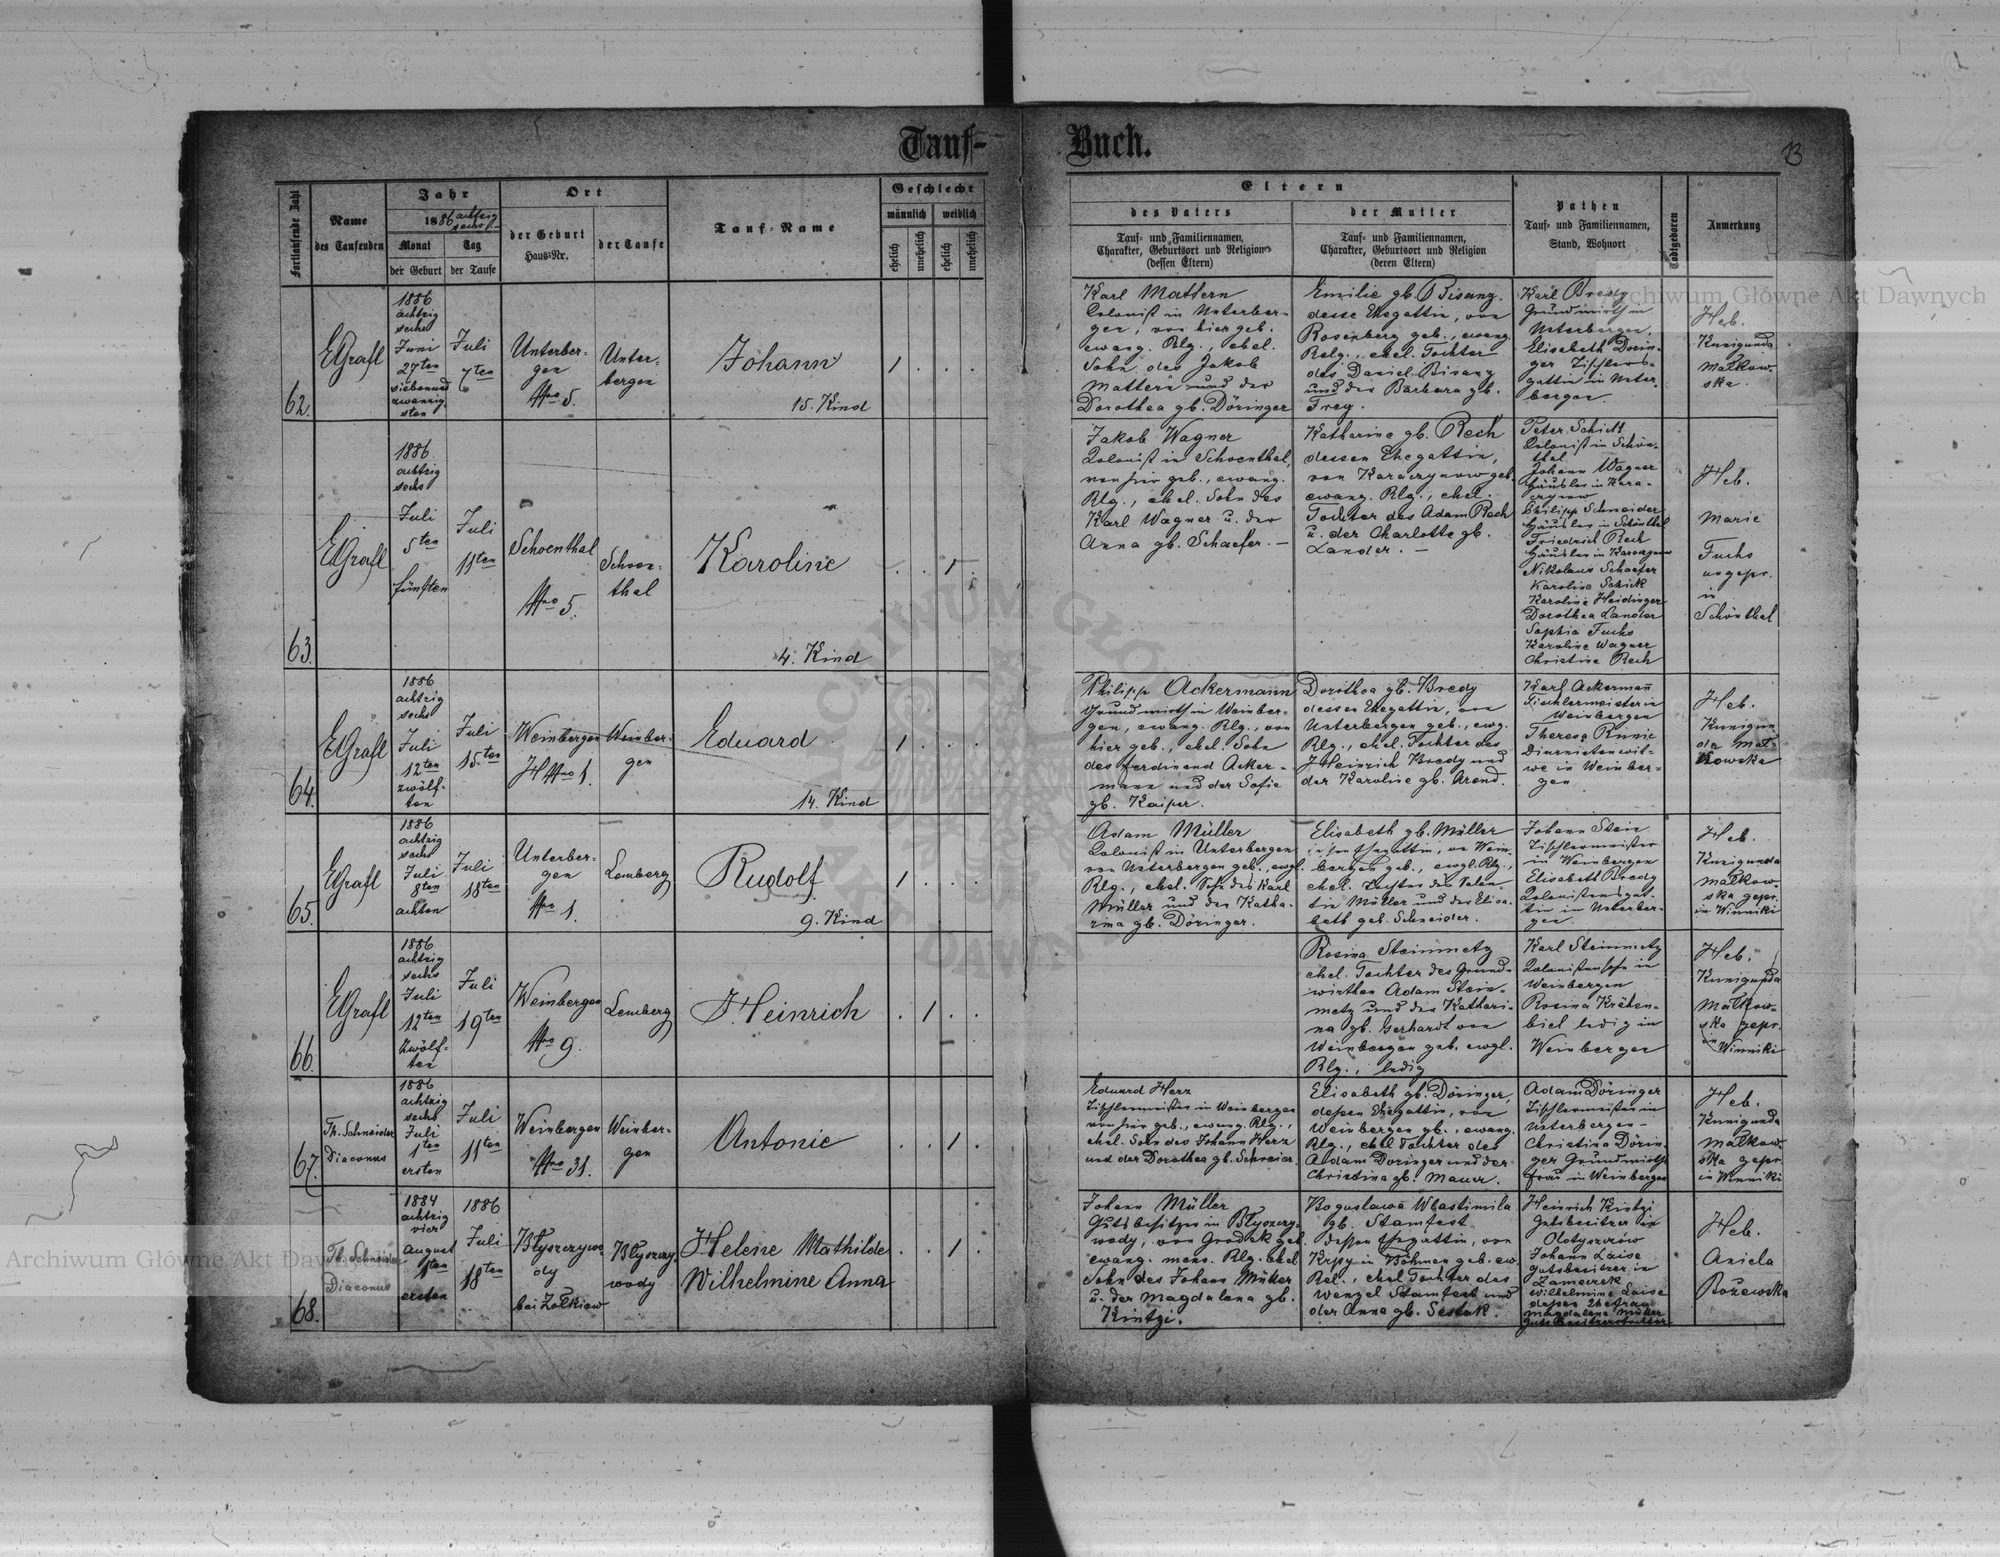 Tauf-Buch.
13
Fortlaufende Zahl
Name
des Taufenden
Jahr
1886 achtzig
sechs
Monat
Tag
der Geburt
der Taufe
Ort
der Geburt
Haus-Nr.
der Taufe
Tauf-Name
Geschlecht
männlich
weiblich
ehelich
unehelich
ehelich
unehelich
Eltern
des Vaters
Tauf- und Familiennamen,
Charakter, Geburtsort und Religion
(dessen Eltern)
der Mutter
Tauf- und Familiennamen,
Charakter, Geburtsort und Religion
(deren Eltern)
Pathen
Tauf- und Familiennamen,
Stand, Wohnort
Todtgeboren
Anmerkung
62.
EGrafl
1886
achtzig
sechs
Juni
27ten
siebenund
zwanzig
sten
Juli
7ten
Unterber-
gen
Nro 5.
Unter-
bergen
Johann
15. Kind
1
Karl Mattern
Colonist in Unterber-
gen, von hier geb.
ewang. Rlg., ehel.
Sohn des Jakob
Mattern und der
Dorothea gb. Döringer
Emilie gb. Bisanz.
desse Ehegattin, von
Rosenberg geb., ewang.
Relg., ehel. Tochter
des Daniel Bisanz
und der Barbara gb.
Frey.
Karl Bredy
Grundwirth in
Unterbergen.
Elisabeth Dorin-
ger Tischlers-
gattin in Unter-
bergen.
Heb.
Kunigunda
Małkow-
ska.
63.
EGrafl
1886
achtzig
sechs
Juli
5ten
fünften
Juli
11ten
Schoenthal
Nro 5.
Schoen-
thal
Karoline
4. Kind
1
Jakob Wagner
Kolonist in Schoenthal,
von hier geb., ewang.
Rlg., ehel. Sohn des
Karl Wagner u. der
Anna gb. Schaefer. —
Katharina gb. Rech
dessen Ehegattin,
von Karaczynow geb.
ewang. Rlg., ehel.
Tochter des Adam Rech
u. der Charlotte gb.
Lander. —
Peter Schick
Kolonist in Schön-
thal
Johann Wagner
Häusler in Kara-
czynow
Philipp Schneider
Häusler in Schönthal
Friedrich Rech
Häusler in Karaczynow
Nikolaus Schaefer
Karolina Schick
Karoline Heidinger
Dorothea Lander
Sophia Fuchs
Karoline Wagner
Christine Rech
Heb.
Marie
Fuchs
ungepr.
in
Schönthal
64.
EGrafl
1886
achtzig
sechs
Juli
12ten
zwölf-
ten
Juli
15ten
Weinbergen
H Nro 1.
Weinber-
gen
Eduard
14. Kind
1
Philipp Ackermann
Grundwirth in Weinber-
gen, ewang. Rlg., von
hier geb., ehel. Sohn
des Ferdinand Acker-
mann und der Sofie
gb. Kaiper.
Dorothea gb. Bredy
dessen Ehegattin, von
Unterbergen geb., ewg.
Rlg., ehel. Tochter des
Heinrich Bredy und
der Karoline gb. Arend.
Karl Ackermañ
Tischlermeister in
Weinbergen
Theresa Kunic
Diurnistenwit-
we in Weinber-
gen
Heb.
Kunigun-
da Mał-
kowska
65.
EGrafl
1886
achtzig
sechs
Juli
8ten
achten
Juli
18ten
Unterber-
gen
Nro 1.
Lemberg
Rudolf
9. Kind
1
Adam Müller
Kolonist in Unterbergen
von Unterbergen geb., ewgl.
Rlg., ehel. Sohn des Karl
Müller und der Katha-
rina gb. Döringer.
Elisabeth gb. Müller
dessen Ehegattin, von Wein-
bergen geb., ewgl. Rlg.,
ehel. Tochter des Valen-
tin Müller und der Elisa-
beth geb. Schneider.
Johann Stein
Tischlermeister
in Weinbergen
Elisabeth Bredy
Kolonistensgat-
tin in Unterber-
gen.
Heb.
Kunigunda
Małkow-
ska gepr.
in Winniki
66.
EGrafl
1886
achtzig
sechs
Juli
12ten
zwölf-
ten
Juli
19ten
Weinbergen
Nro 9.
Lemberg
Heinrich
1
Rosina Steinmetz
ehel. Tochter des Grund-
wirthen Adam Stein-
metz und der Kathari-
na gb. Gerhardt von
Weinbergen geb. ewgl.
Rlg., ledig
Karl Steinmetz
Kolonistensohn in
Weinbergen
Rosina Krähen-
biel ledig in
Weinbergen
Heb.
Kunigunda
Małkow-
ska gepr.
in Winniki
67.
Th. Schneider
Diaconus
1886
achtzig
sechs
Juli
1ten
ersten
Juli
11ten
Weinbergen
Nro 31.
Weinber-
gen
Antonie
1
Eduard Herz
Tischlermeister in Weinbergen
von hier geb., ewang. Rlg.,
ehel. Sohn des Johann Herz
und der Dorothea gb. Schreier.
Elisabeth gb. Döringer,
dessen Ehegattin, von
Weinbergen gb., ewang.
Rlg., ehel. Tochter des
Adam Doringer und der
Christina gb. Mauer.
Adam Döringer
Tischlermeister in
Unterbergen-
Christina Dörin-
ger Grundwirths-
frau in Weinbergen
Heb.
Kunigunda
Małkow-
ska gepr.
in Winniki
68.
Th. Schneider
Diaconus
1884
achtzig
vier
August
1ten
ersten
1886
Juli
18ten
Błyszczywo
dy
bei Żołkiew
Błyszczy-
wody
Helene Mathilde
Wilhelmine Anna
1
Johann Müller
Gutsbesitzer in Błyszczy-
wody, von Grodek geb.
ewang. mens. Rlg. ehel.
Sohn des Johann Müller
u. der Magdalena gb.
Kintzi.
Boguslawa Wlastimila
gb. Stamfest
dessen Ehegattin, von
Krpy in Böhmen geb. ew.
Rel., ehel. Tochter des
Wenzel Stamfest und
der Anna gb. Sestak.
Heinrich Kintzi
Gutsbesitzer in
Johann Laise
Gutsbesitzer in
Zameczek
Wilhelmine Laise
dessen Ehefrau
Magdalena Müller
Gutsbesitzerstochter
Heb.
Aniela
Bożewska
Archiwum Główne Akt Dawnych
Archiwum Główne Akt Dawnych
ARCHIWUM GŁÓWNE AKT DAWNYCH